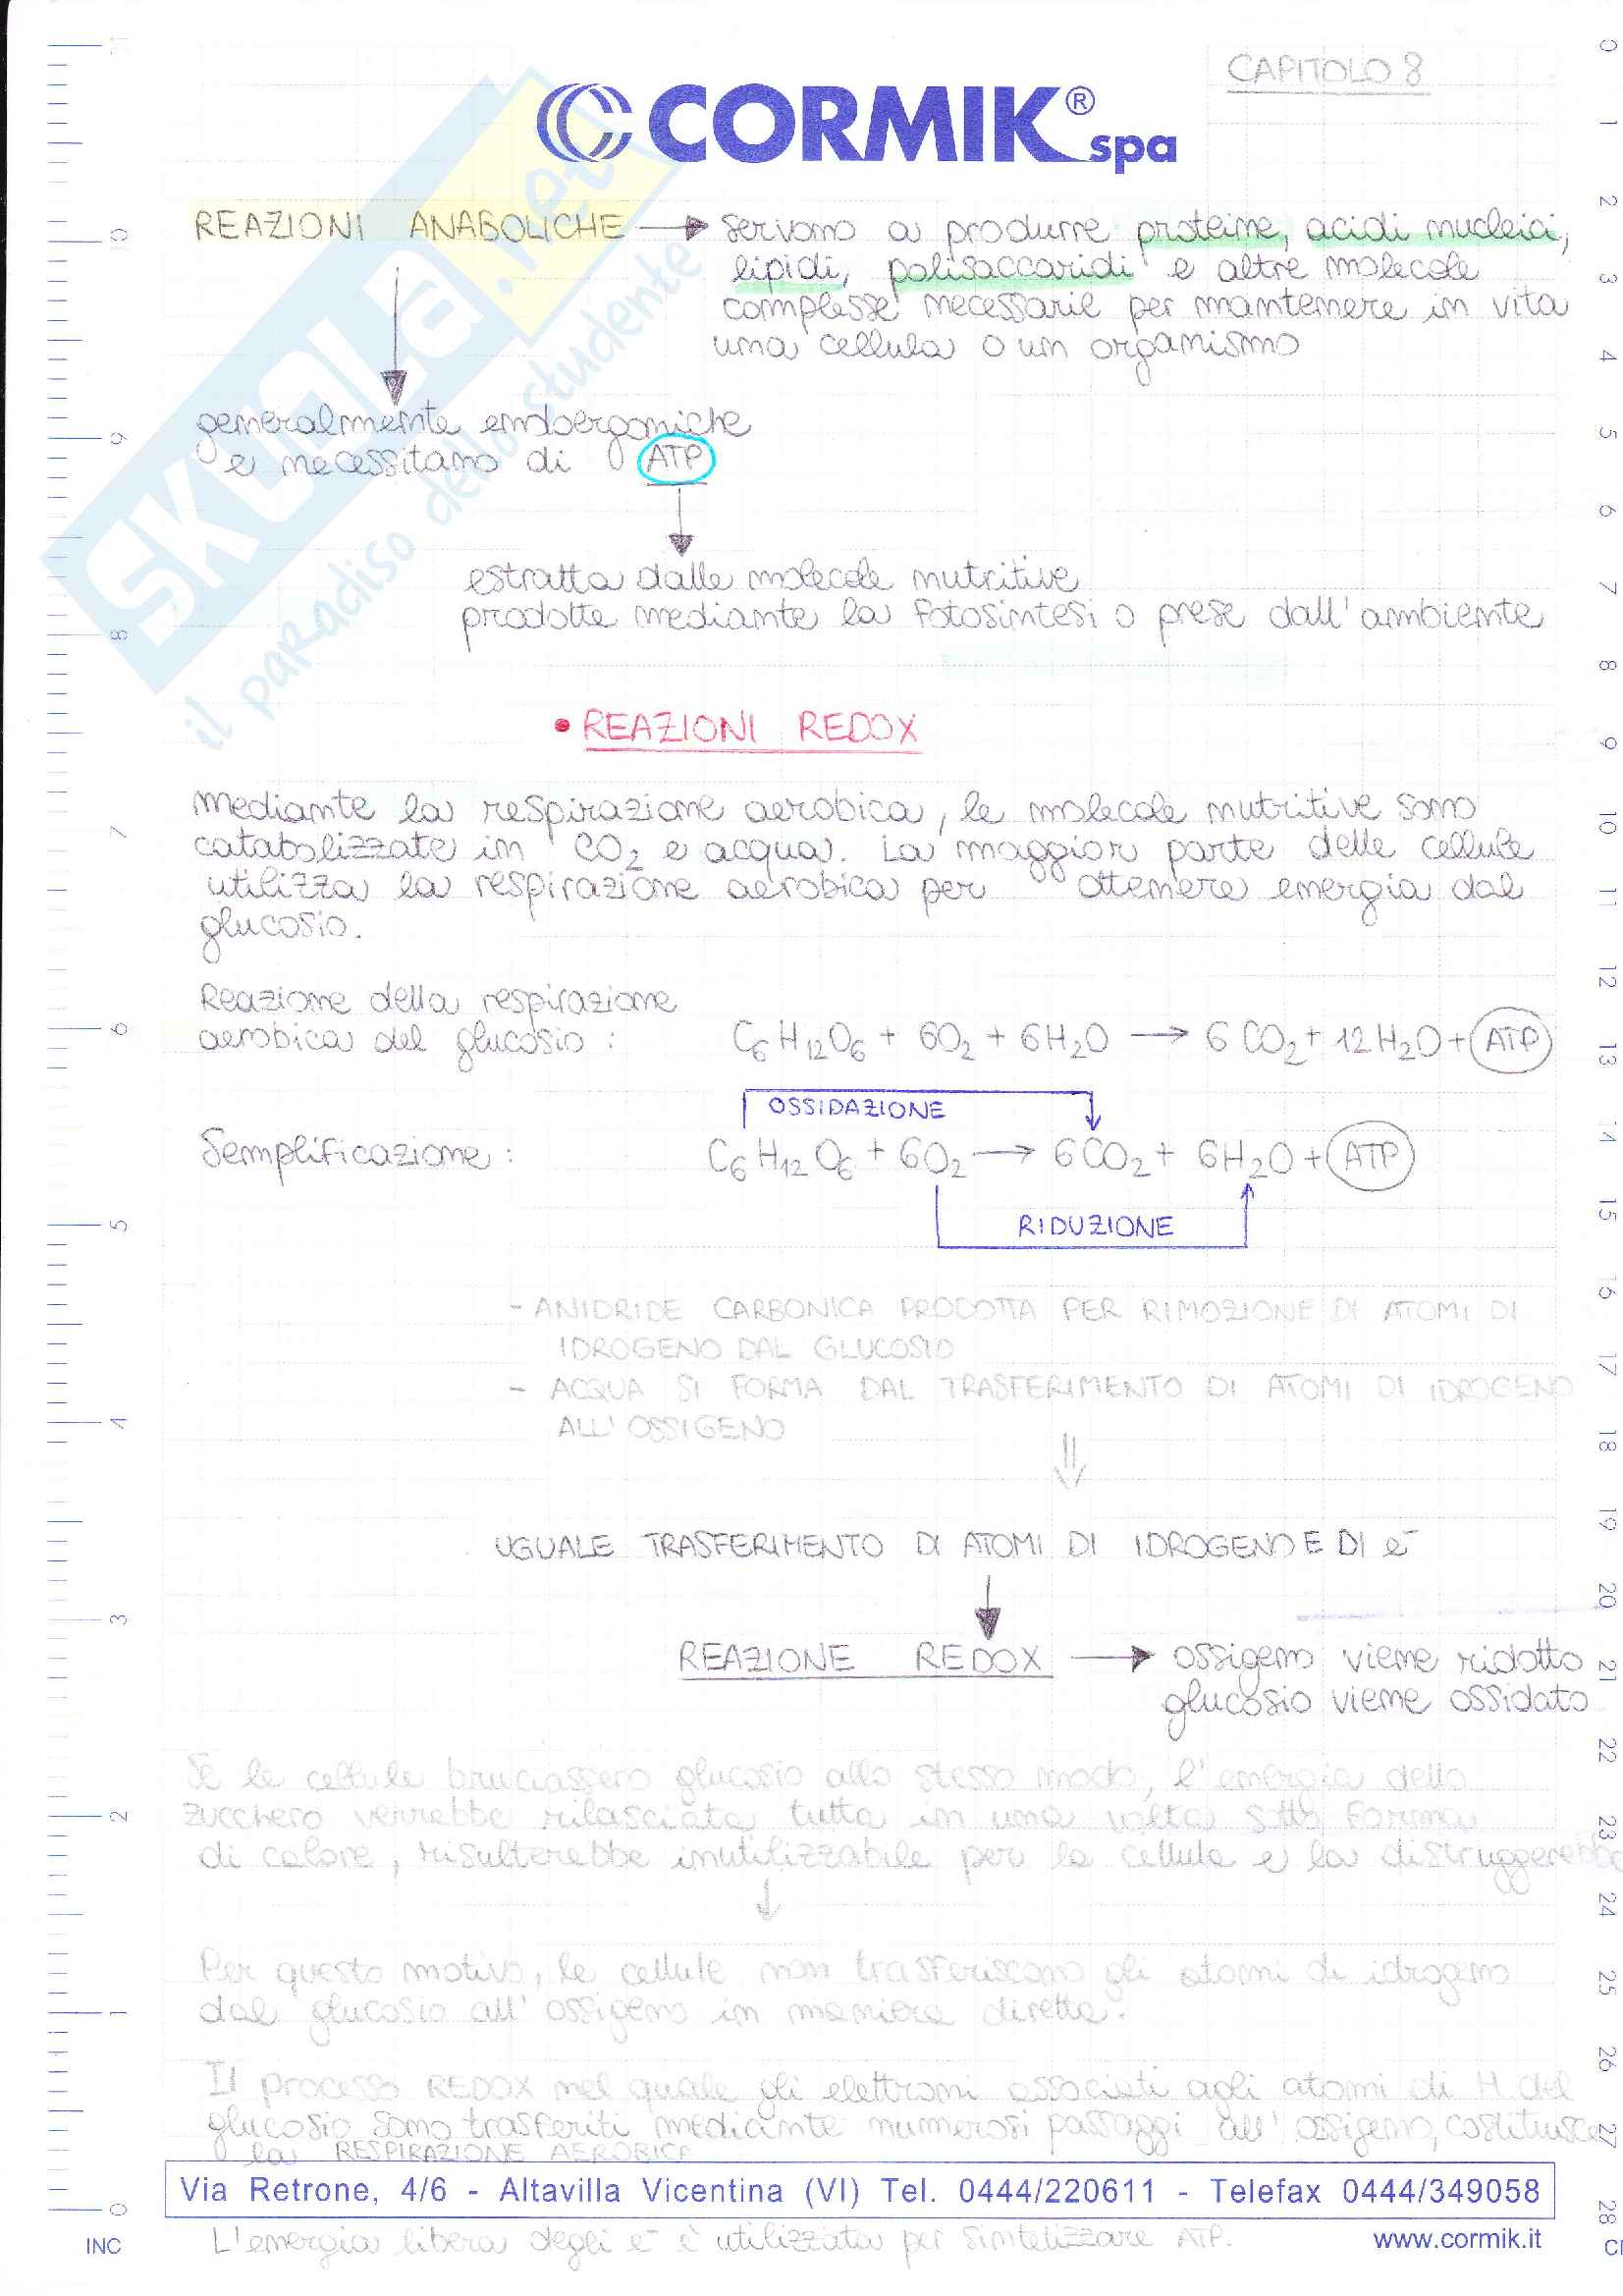 CAPITOLO 8
CORMIK® spa
REAZIONI ANABOLICHE → servono a produrre proteine, acidi nucleici,
lipidi, polisaccaridi e altre molecole
complesse necessarie per mantenere in vita
una cellula o un organismo
generalmente endoergoniche
e necessitano di ATP
estratta dalle molecole nutritive
prodotte mediante la fotosintesi o prese dall'ambiente
SKUOLA.net
il paradiso dello studente
• REAZIONI REDOX
mediante la respirazione aerobica, le molecole nutritive sono
catabolizzate in CO₂ e acqua. La maggior parte delle cellule
utilizza la respirazione aerobica per ottenere energia dal
glucosio.
Reazione della respirazione
aerobica del glucosio : C₆H₁₂O₆ + 6O₂ + 6H₂O → 6CO₂ + 12H₂O + ATP
OSSIDAZIONE
Semplificazione : C₆H₁₂O₆ + 6O₂ → 6CO₂ + 6H₂O + ATP
RIDUZIONE
- ANIDRIDE CARBONICA PRODOTTA PER RIMOZIONE DI ATOMI DI
IDROGENO DAL GLUCOSIO
- ACQUA SI FORMA DAL TRASFERIMENTO DI ATOMI DI IDROGENO
ALL'OSSIGENO
⇓
UGUALE TRASFERIMENTO DI ATOMI DI IDROGENO E DI e⁻
REAZIONE REDOX → ossigeno viene ridotto
glucosio viene ossidato
Se le cellule bruciassero glucosio allo stesso modo, l'energia dello
zucchero verrebbe rilasciata tutta in una volta sotto forma
di calore, risulterebbe inutilizzabile per la cellula e la distruggerebbe
↓
Per questo motivo, le cellule non trasferiscono gli atomi di idrogeno
dal glucosio all'ossigeno in maniera diretta.
Il processo REDOX nel quale gli elettroni associati agli atomi di H del
glucosio sono trasferiti mediante numerosi passaggi all'ossigeno, costituisce
la RESPIRAZIONE AEROBICA
Via Retrone, 4/6 - Altavilla Vicentina (VI) Tel. 0444/220611 - Telefax 0444/349058
L'energia libera degli e⁻ è utilizzata per sintetizzare ATP.
www.cormik.it
INC
10
9
8
7
6
5
4
3
2
1
0
0
1
2
3
4
5
6
7
8
9
10
11
12
13
14
15
16
17
18
19
20
21
22
23
24
25
26
27
28